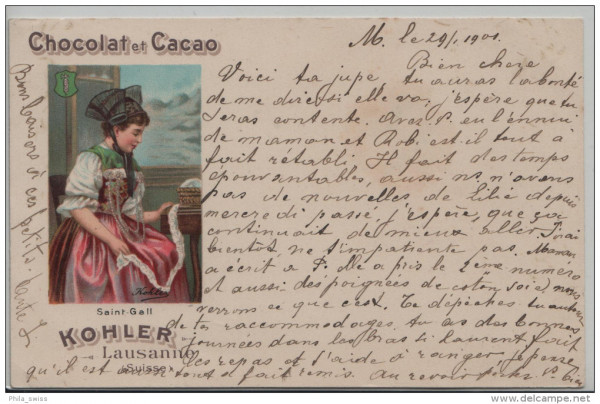 Chocolat et Cacao
M. le 29/1 1901.
Bien chere
Voici ta jupe tu auras la bonté
de me dire si elle va, j'espère que tu
seras contente. Avez P. eu l'ennui
de maman et Robi est-il tout à
fait rétabli Il fait des temps
épouvantables, aussi ns n'avons
pas de nouvelles de Lilie depuis
mercredi passé, j'espère, que ça
continuait de mieux aller. J'irai
bientôt ne t'impatiente pas. Maman
a écrit a P. Me a pris le 2ème numero
et aussi des poignées de coton, soie, nous
verrons ce que c'est. Te dépêches tu
de tes raccommodages. tu as des bonnes
journées dans les bras si Laurent fait
les repas et t'aide à ranger, je pense
qu'il est aussi tout a fait remis. Au revoir
Bons baisers à ces petits.
Kohler
Saint-Gall
KOHLER
Lausanne
(Suisse)
Phila_swiss
delcampe.net